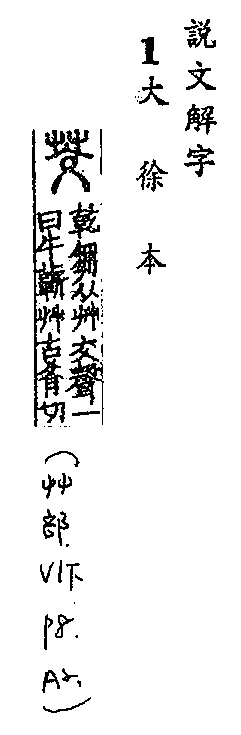 説文解字
1大徐本
茭
乾芻从艸交聲一
曰牛蘄艸古肴切
(艸部.V1下 p8.